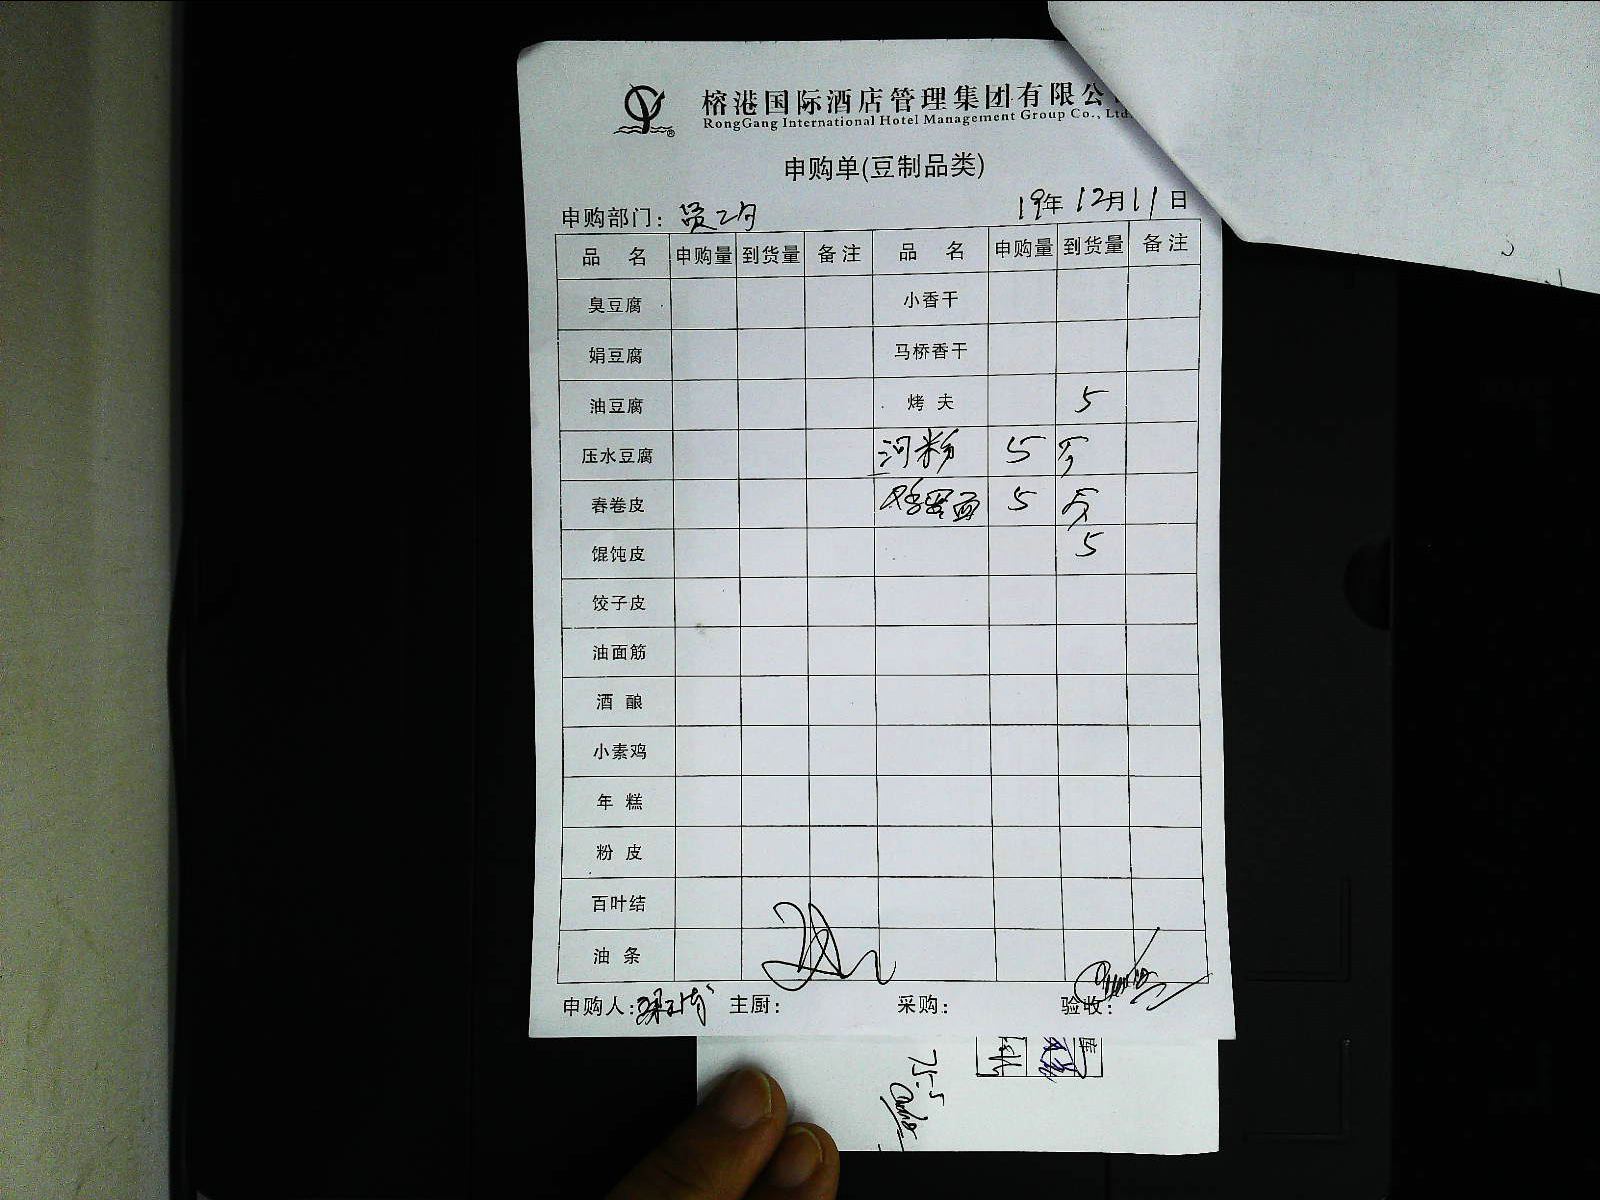 榕港国际酒店管理集团有限公
RongGang International Hotel Management Group Co., Ltd.
申购单(豆制品类)
申购部门: 员工
19年12月11日
品 名 申购量 到货量 备注 品 名 申购量 到货量 备注
臭豆腐 小香干
娟豆腐 马桥香干
油豆腐 烤 夫 5
压水豆腐 河粉 5
春卷皮 鸡蛋面 5
馄饨皮 5
饺子皮
油面筋
酒 酿
小素鸡
年 糕
粉 皮
百叶结
油 条
申购人: 主厨: 采购: 验收:
75.5
库